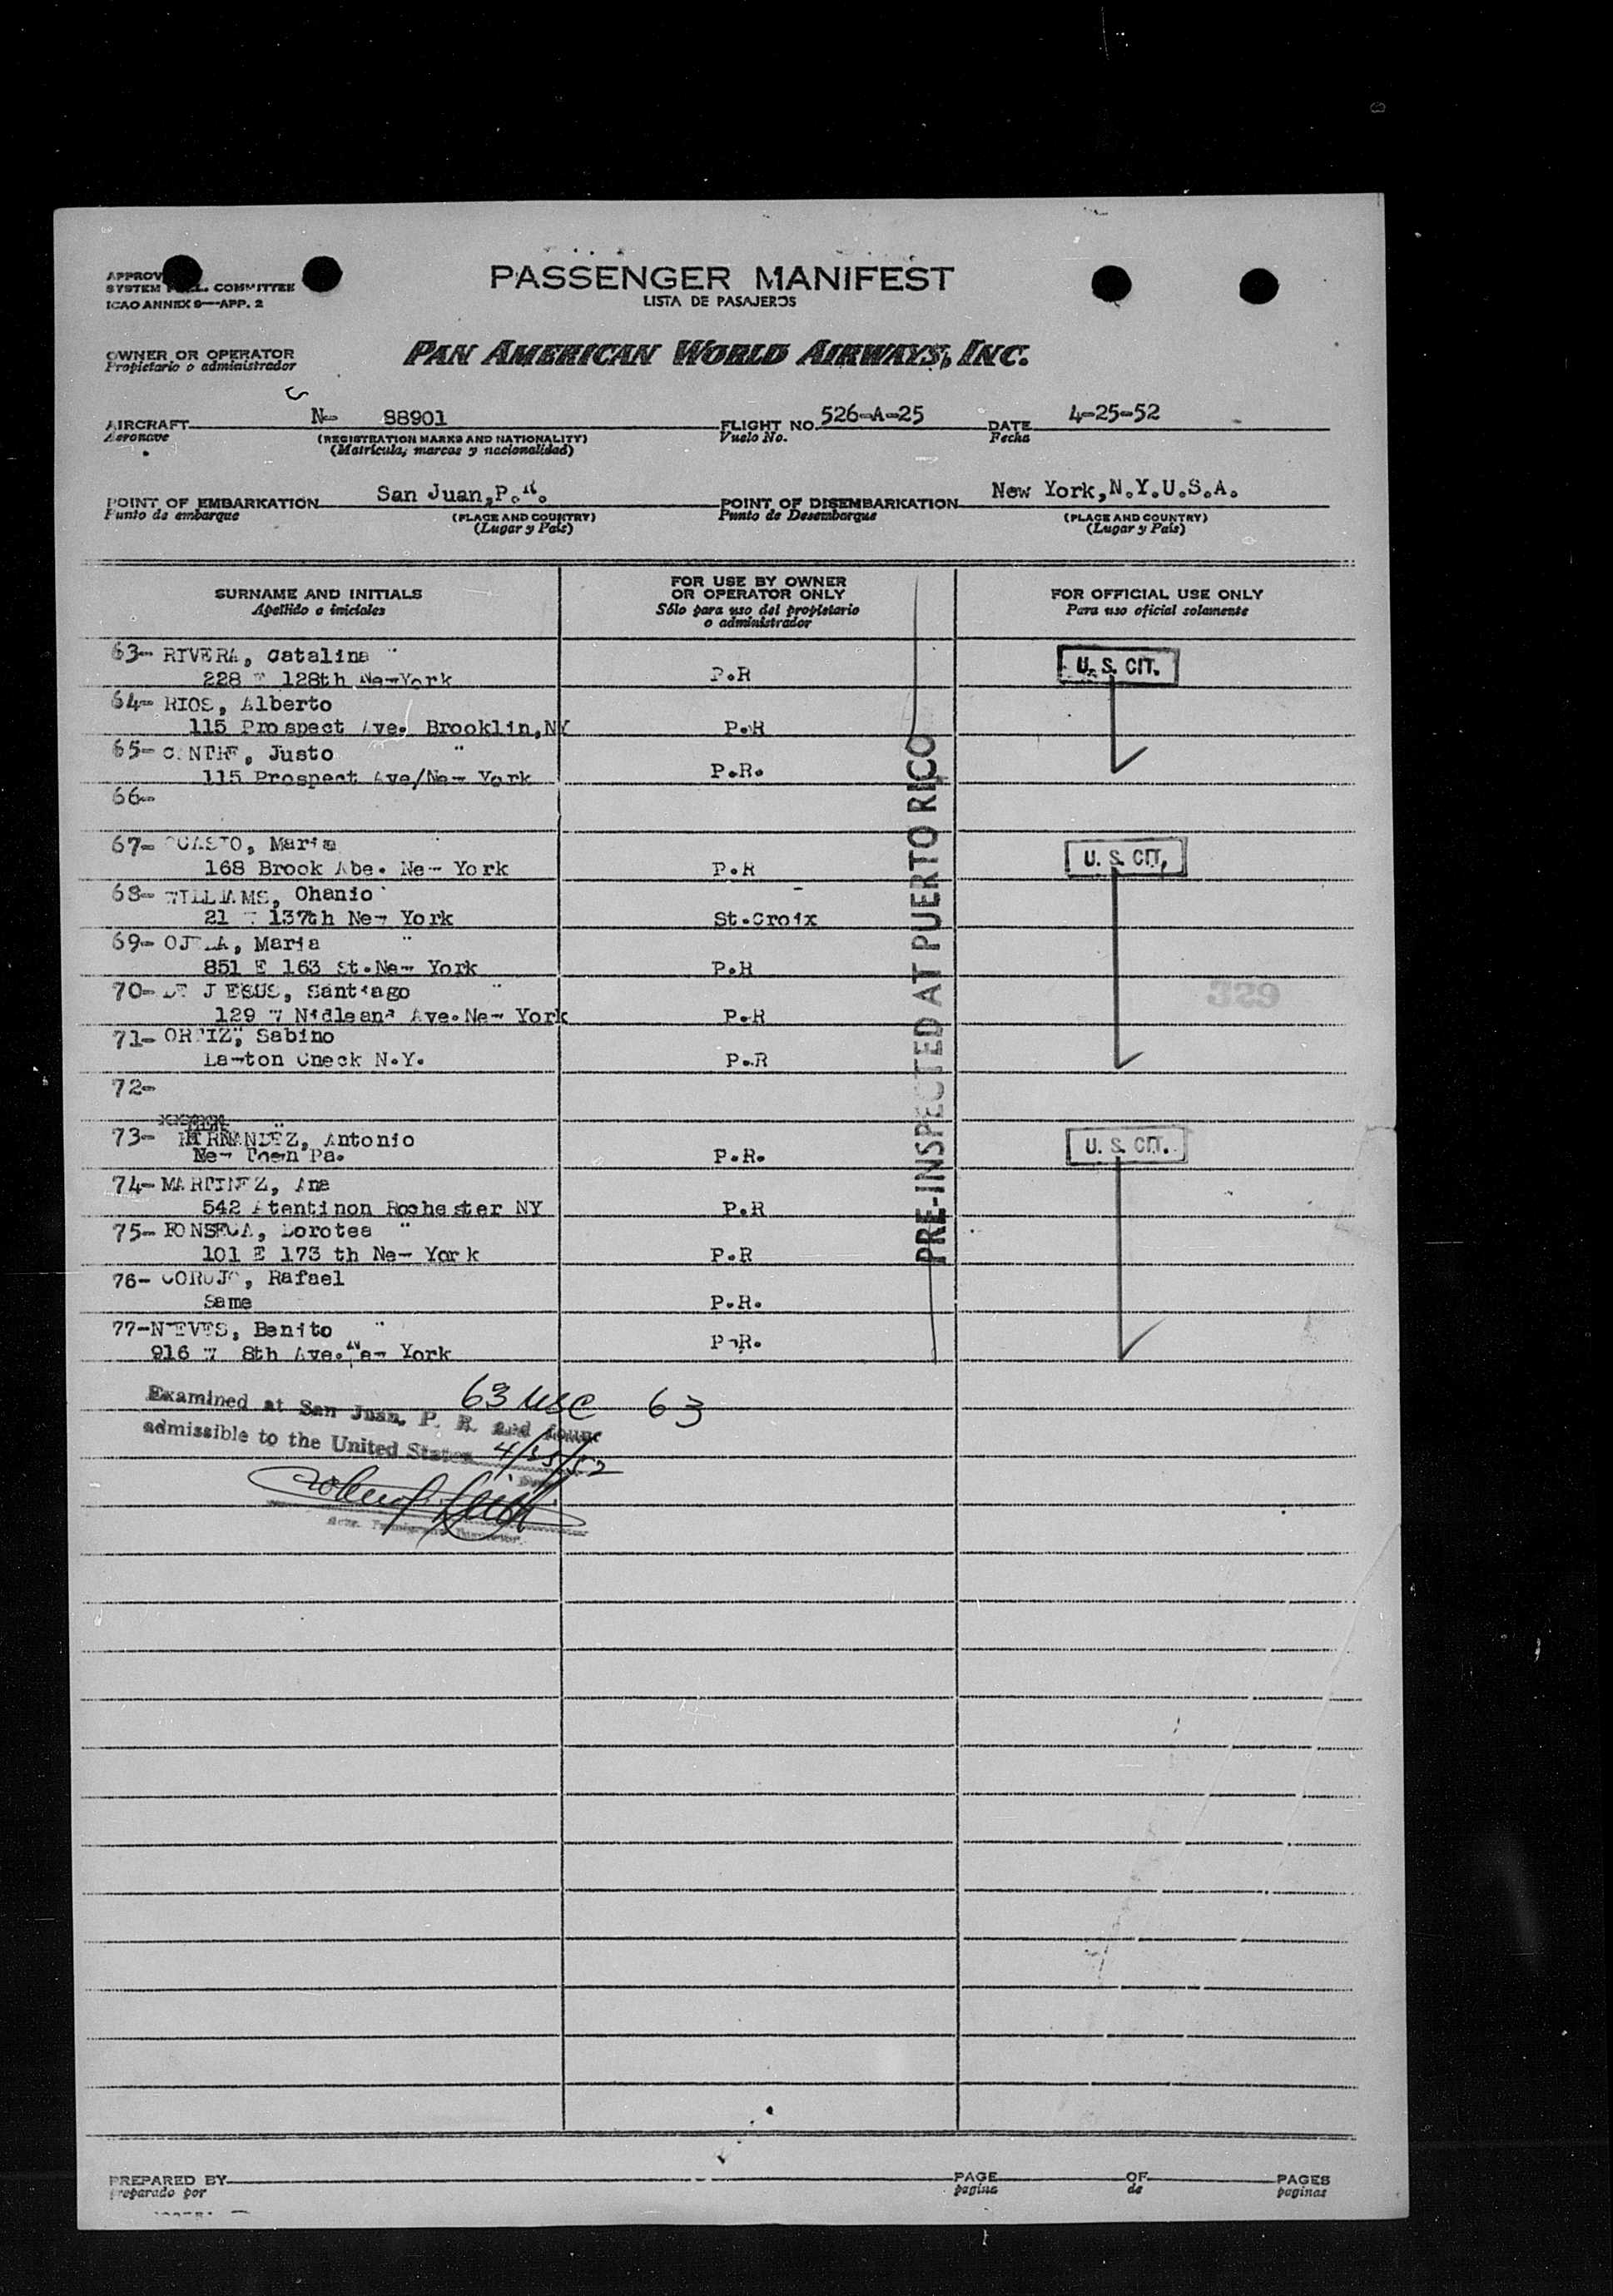 PASSENGER MANIFEST
LISTA DE PASAJEROS
SYSTEM COMMITTEE
ICAO ANNEX 9—APP. 2
OWNER OR OPERATOR
Propietario o administrador
PAN AMERICAN WORLD AIRWAYS, INC.
AIRCRAFT N- 88901 FLIGHT NO. 526-A-25 DATE 4-25-52
Aeronave (REGISTRATION MARKS AND NATIONALITY) Vuelo No. Fecha
(Matrícula, marcas y nacionalidad)
POINT OF EMBARKATION San Juan,P.R. POINT OF DISEMBARKATION New York,N.Y.U.S.A.
Punto de embarque (PLACE AND COUNTRY) Punto de Desembarque (PLACE AND COUNTRY)
(Lugar y País) (Lugar y País)
SURNAME AND INITIALS
Apellido e iniciales
FOR USE BY OWNER
OR OPERATOR ONLY
Sólo para uso del propietario
o administrador
FOR OFFICIAL USE ONLY
Para uso oficial solamente
63- RIVERA, Catalina "
228 128th New York P.R U. S. CIT.
64- RIOS, Alberto
115 Prospect Ave. Brooklin,NY P.R
65- Justo "
115 Prospect Ave/New York P.R.
66-
67- Maria "
168 Brook Abe. New York P.R U. S. CIT.
68- WILLIAMS, Ohanio
21 137th New York St.Croix
69- Maria "
851 E 163 St.New York P.R
70- DE JESUS, Santiago "
129 Ave.New York P.R
71- ORTIZ, Sabino
N.Y. P.R
72-
73- HERNANDEZ, Antonio
New Pa. P.R. U. S. CIT.
74- MARTINEZ, Ana
542 Rochester NY P.R
75- FONSECA, Dorotea "
101 E 173 th New York P.R
76- Rafael
Same P.R.
77-NIEVES, Benito "
916 8th Ave.New York P.R.
PRE-INSPECTED AT PUERTO RICO
329
63 USC 63
Examined at San Juan, P. R. and found
admissible to the United States 4/25/52
PREPARED BY PAGE OF PAGES
preparado por pagina de paginas